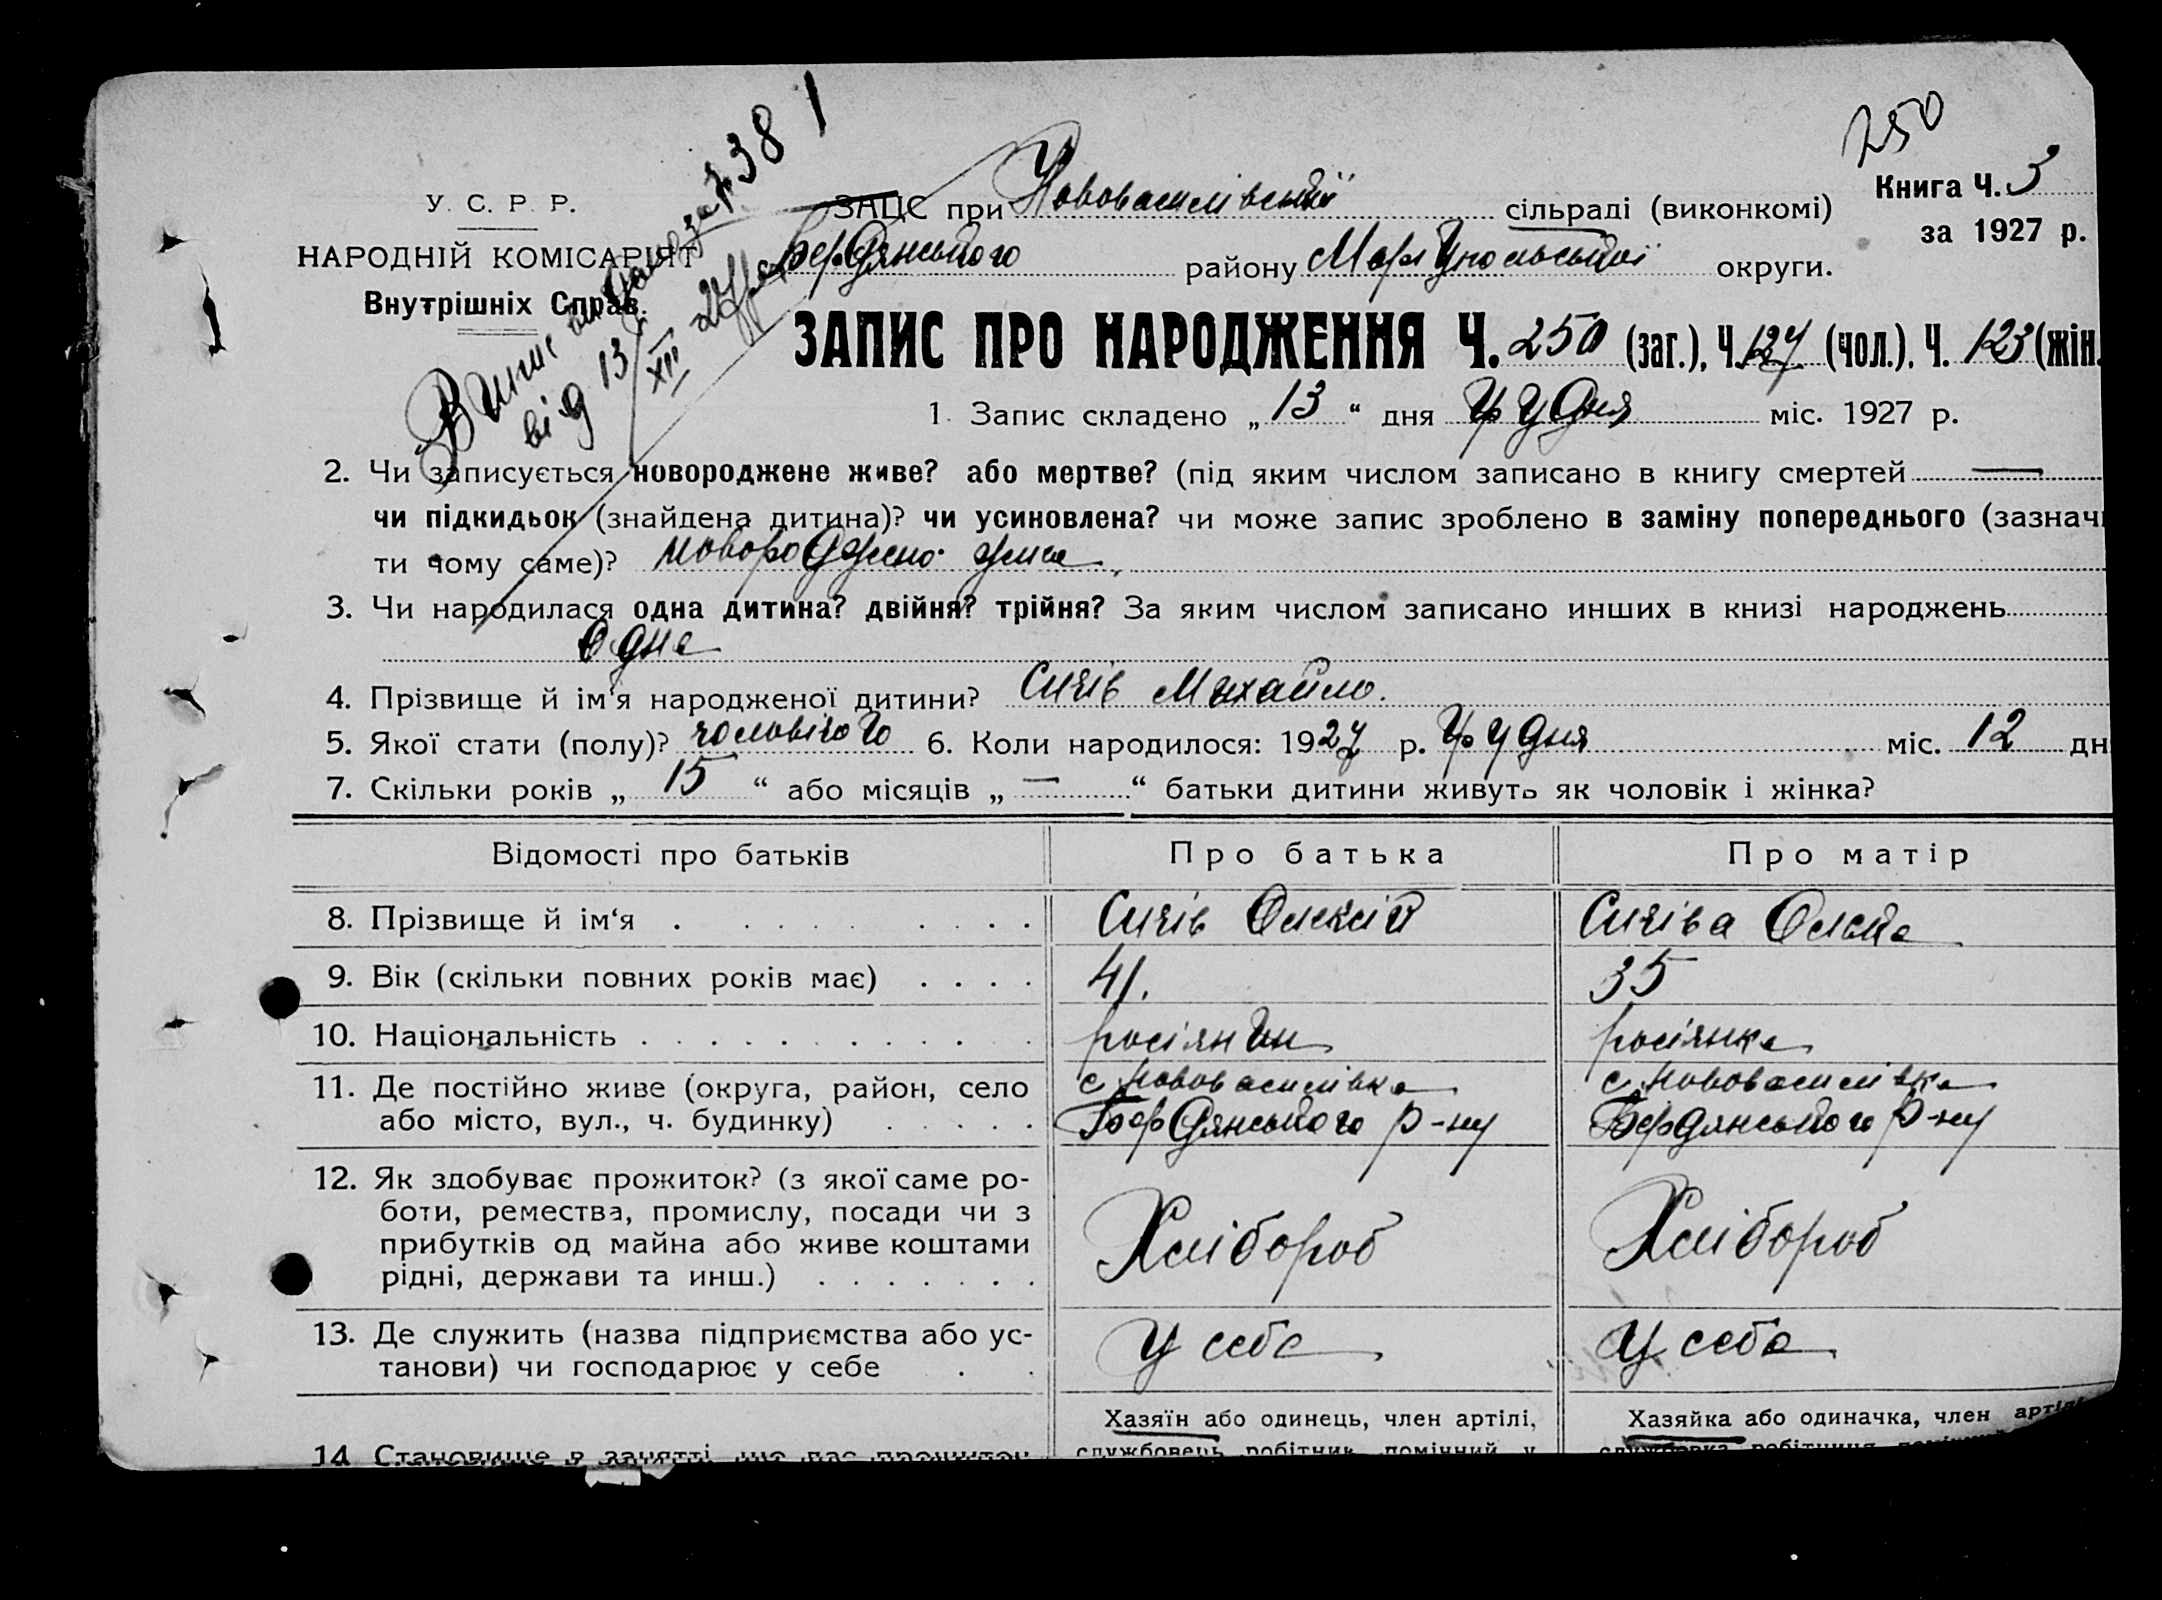 250
Книга Ч. 3
за 1927 р.
У. С. Р. Р.
НАРОДНІЙ КОМІСАРІЯТ
Внутрішніх Справ.
Випис видано за № 381
від 13/XII 27 р.
ЗАЦС при Нововасилівській сільраді (виконкомі)
Бердянського району Маріупольської округи.
ЗАПИС ПРО НАРОДЖЕННЯ Ч. 250 (заг.), Ч. 127 (чол.). Ч. 123 (жін.
1. Запис складено „ 13 “ дня Грудня міс. 1927 р.
2. Чи записується новороджене живе? або мертве? (під яким числом записано в книгу смертей —
чи підкидьок (знайдена дитина)? чи усиновлена? чи може запис зроблено в заміну попереднього (зазначи
ти чому саме)? новороджено живе
3. Чи народилася одна дитина? двійня? трійня? За яким числом записано инших в книзі народжень
Одна
4. Прізвище й ім‘я народженої дитини? Сичів Михайло.
5. Якої стати (полу)? чоловічого 6. Коли народилося: 1927 р. Грудня міс. 12 дн
7. Скільки років „ 15 “ або місяців „ — “ батьки дитини живуть як чоловік і жінка?
Відомості про батьків Про батька Про матір
8. Прізвище й ім‘я Сичів Олексій Сичіва Ольга
9. Вік (скільки повних років має) 41. 35
10. Національність росіянин росіянка
11. Де постійно живе (округа, район, село с Нововасилівка с Нововасилівка
або місто, вул., ч. будинку) Бердянського р-ну Бердянського р-ну
12. Як здобуває прожиток? (з якої саме ро-
боти, ремества, промислу, посади чи з Хлібороб Хлібороб
прибутків од майна або живе коштами
рідні, держави та инш.)
13. Де служить (назва підприємства або ус- У себе У себе
танови) чи господарює у себе
Хазяїн або одинець, член артілі, Хазяйка або одиначка, член артілі
14. Становище в занятті, що дає прожиток службовець, робітник, помічний у службовка, робітниця